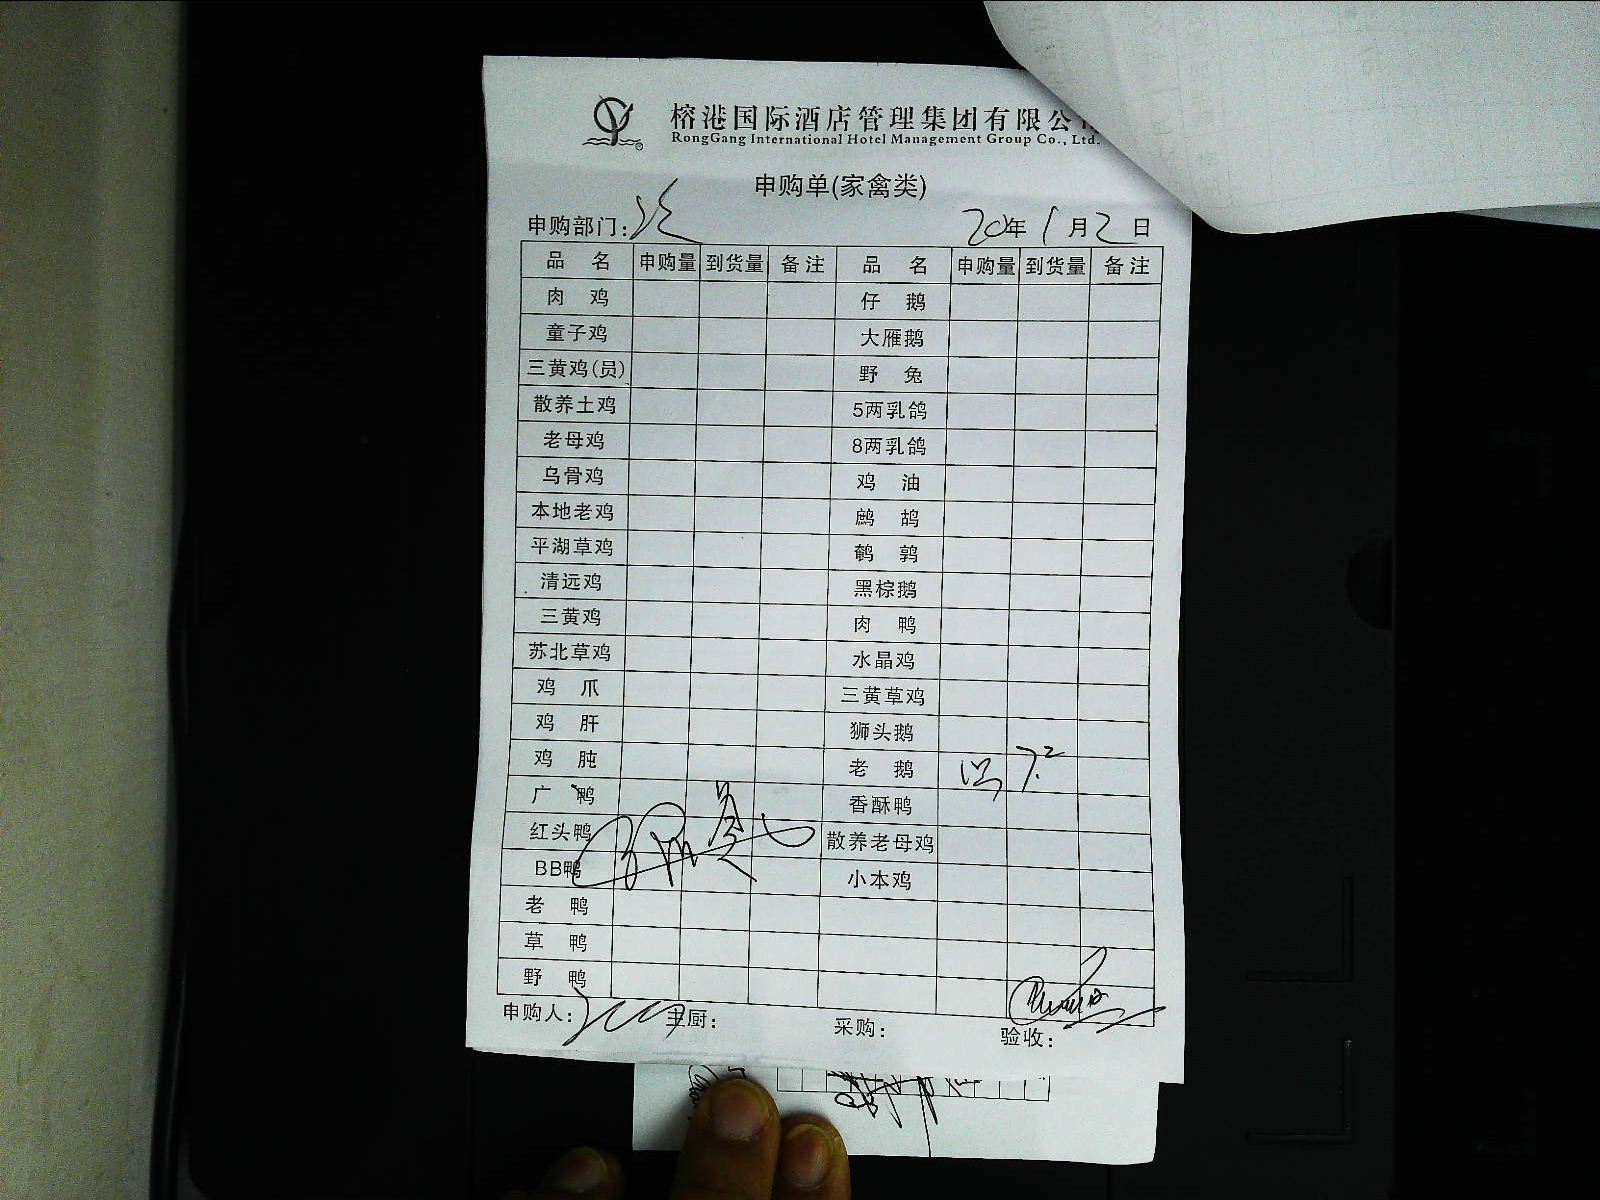 榕港国际酒店管理集团有限公
RongGang International Hotel Management Group Co., Ltd.
申购单(家禽类)
申购部门: 20年1月2日
品 名 申购量 到货量 备注 品 名 申购量 到货量 备注
肉 鸡 仔 鹅
童子鸡 大雁鹅
三黄鸡(员) 野 兔
散养土鸡 5两乳鸽
老母鸡 8两乳鸽
乌骨鸡 鸡 油
本地老鸡 鹧 鸪
平湖草鸡 鹌 鹑
清远鸡 黑棕鹅
三黄鸡 肉 鸭
苏北草鸡 水晶鸡
鸡 爪 三黄草鸡
鸡 肝 狮头鹅
鸡 肫 老 鹅 7.2
广 鸭 香酥鸭
红头鸭 散养老母鸡
BB鸭 小本鸡
老 鸭
草 鸭
野 鸭
申购人: 主厨: 采购: 验收: